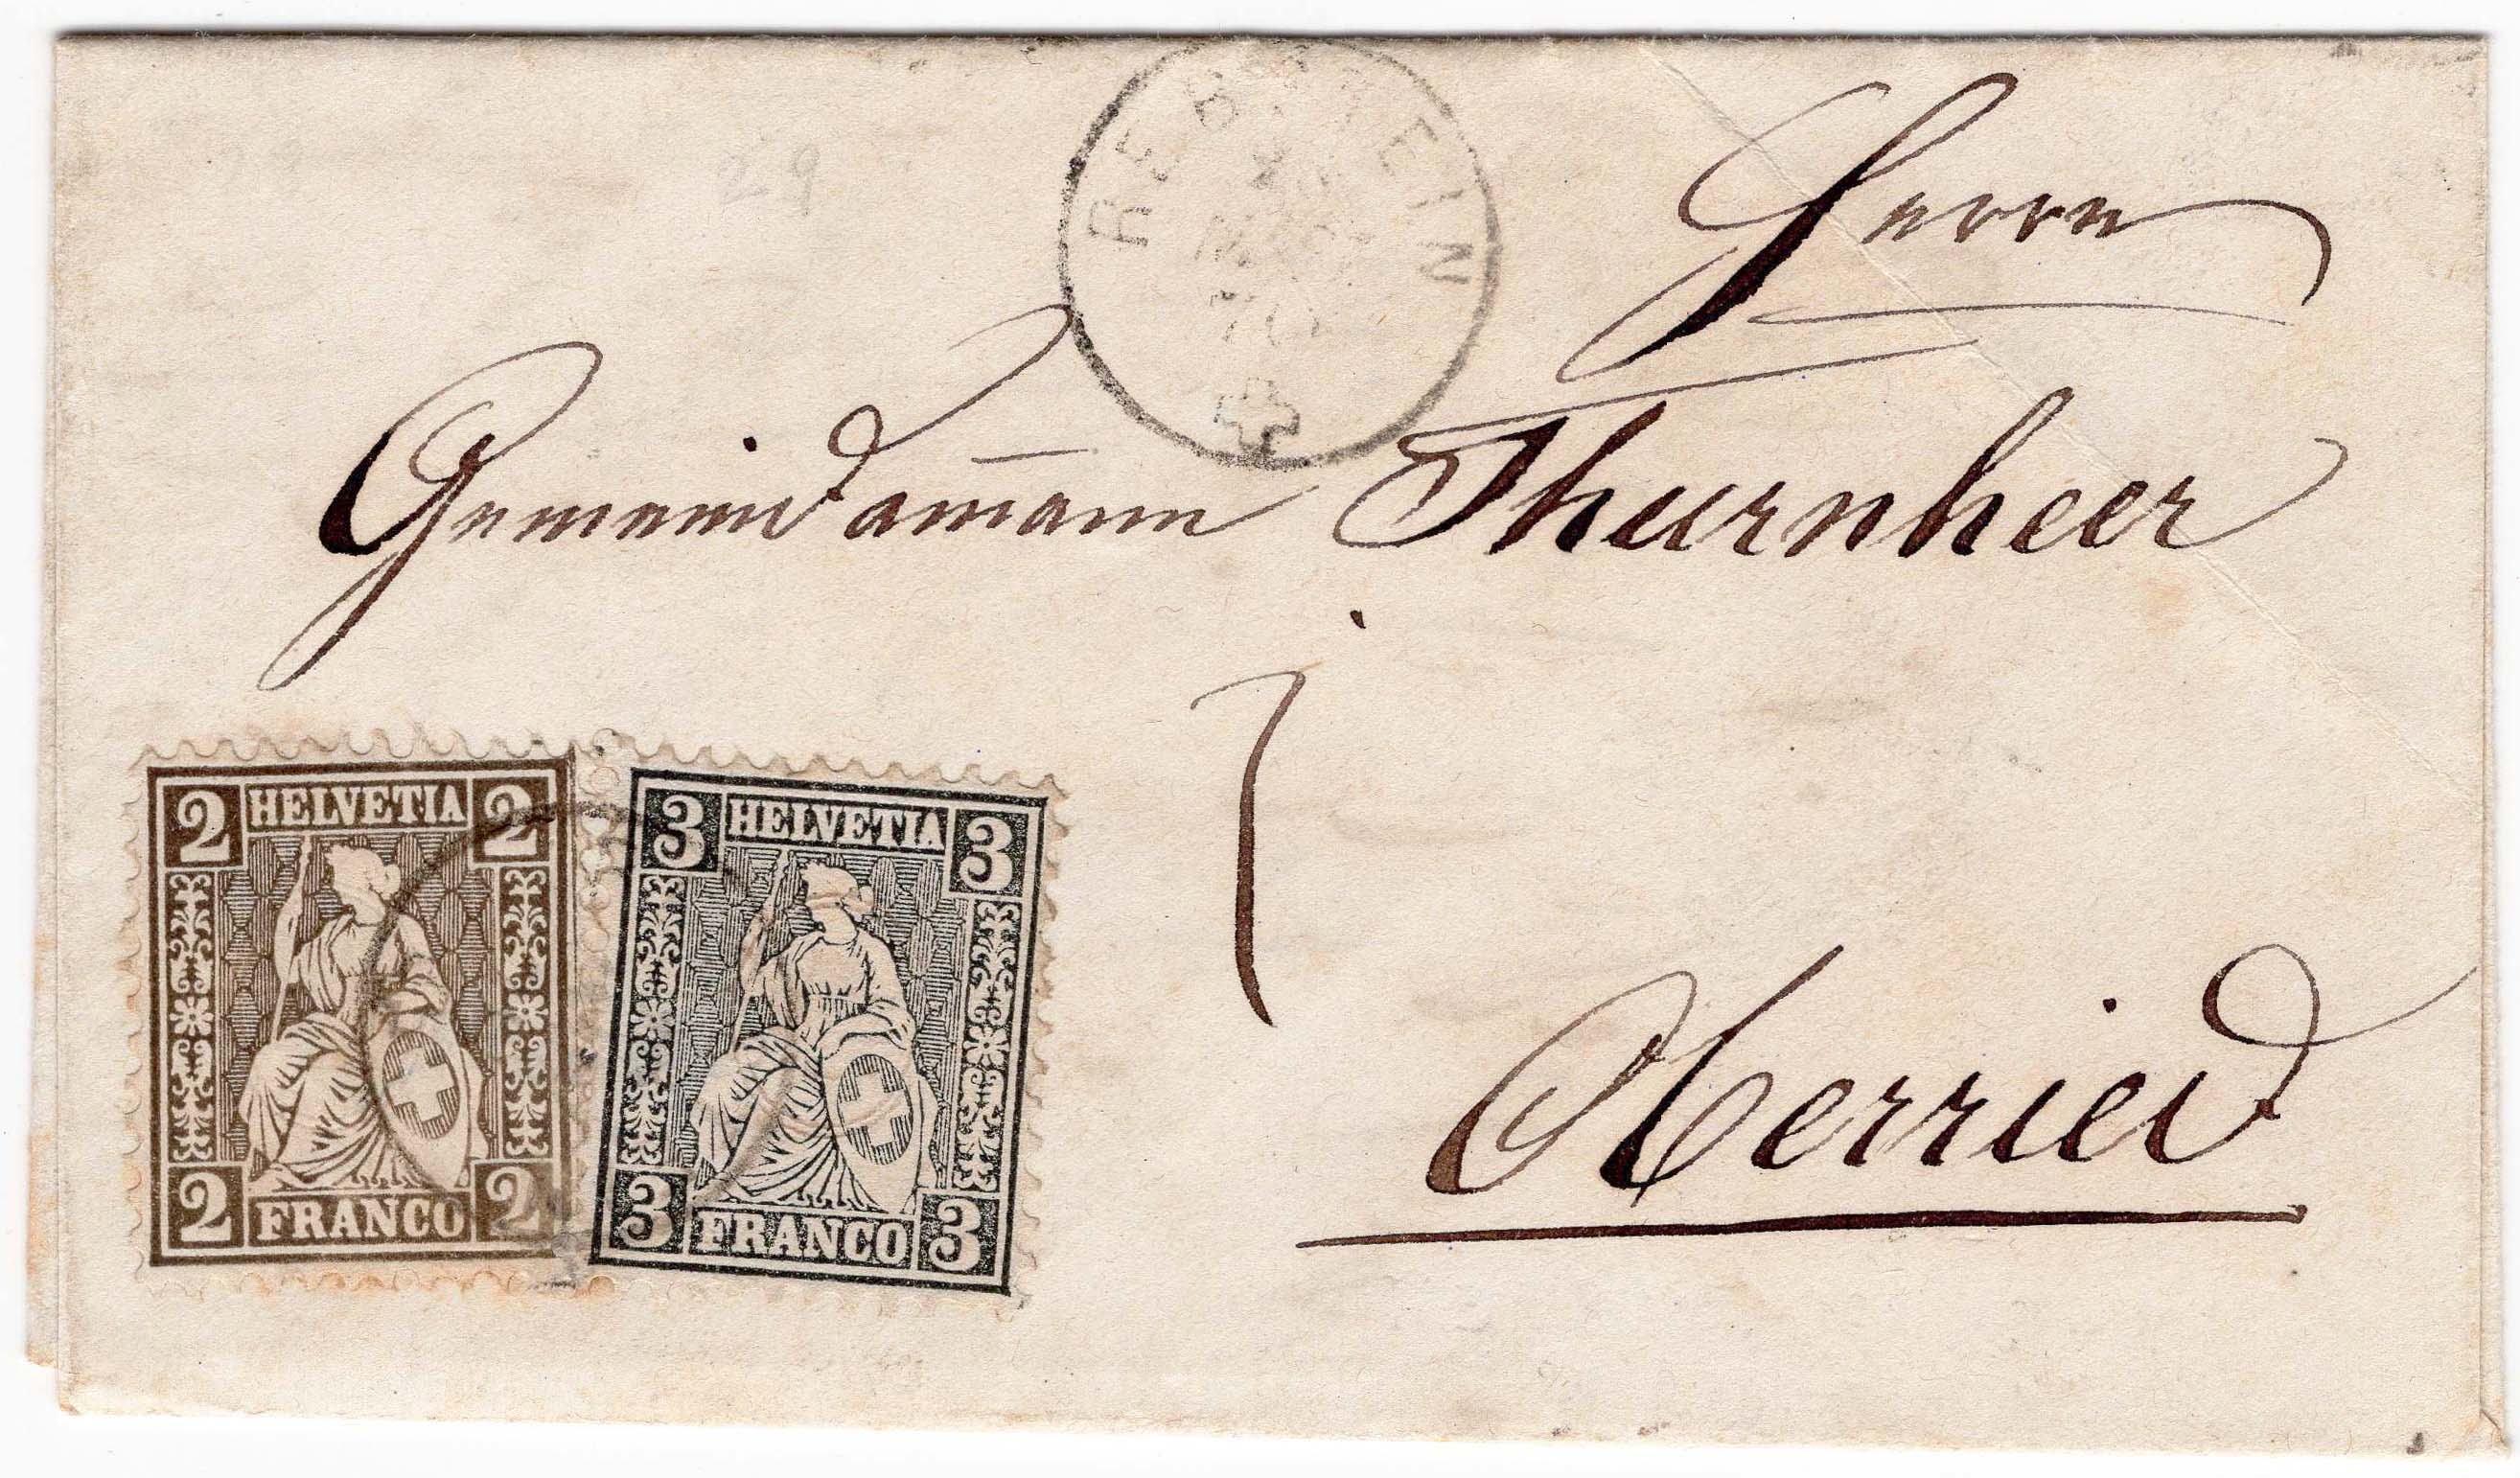 29
REBSTEIN
70
Herrn
Gemeindam̅ann Thurnheer
Oberried
2 HELVETIA 2
2 FRANCO 2
3 HELVETIA 3
3 FRANCO 3